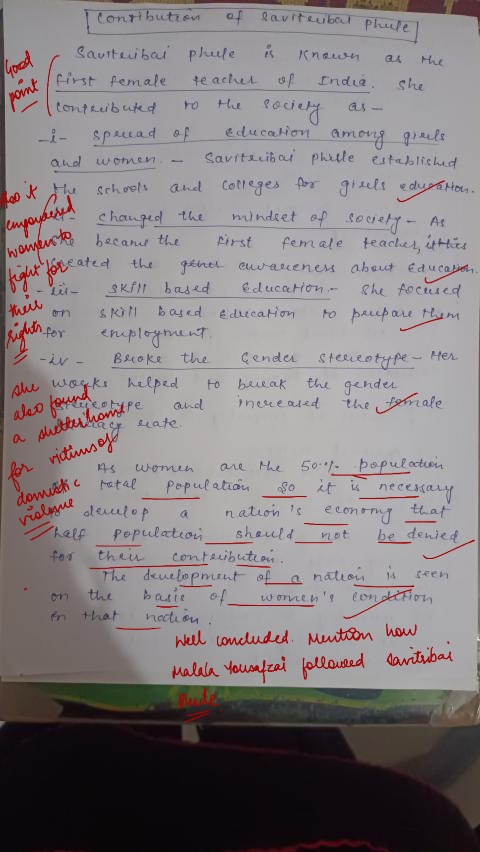 Contribution of Savitribai Phule
Good
point
Savitribai phule is known as the
first female teacher of India. She
contributed to the society as -
-i- spread of education among girls
and women. - Savitribai phule established
the schools and colleges for girls education.
Also it
empowered
women to
fight for
their
rights
changed the mindset of society - As
she became the first female teacher, it this
created the awareness about Education.
-iii- skill based Education - She focused
on skill based Education to prepare them
for employment.
-iv- Broke the Gender Stereotype - Her
works helped to break the gender
stereotype and increased the female
literacy rate.
she
also found
a shelter home
for victims of
domestic
violence
As women are the 50% population
total population so it is necessary
develop a nation's economy that
half population should not be denied
for their contribution.
The development of a nation is seen
on the basis of women's condition
in that nation.
Well concluded. Mention how
Malala Yousafzai followed Savitribai